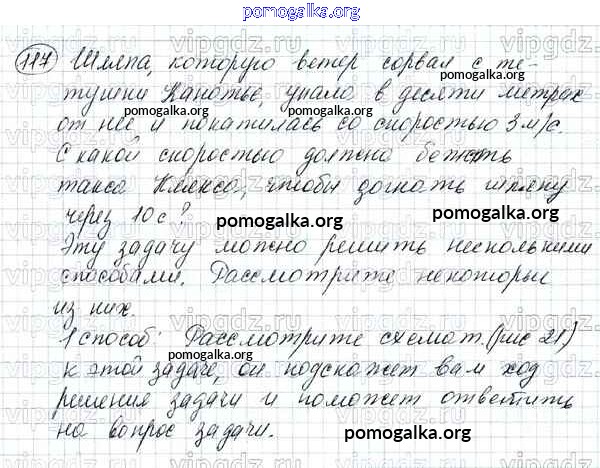 pomogalka.org
117 Шляпа, которую ветер сорвал с те-
тушки Канотье, упало в десяти метрах
pomogalka.org pomogalka.org
от неё и покатилась со скоростью 3 м/с.
С какой скоростью должна бежать
такса Клякса, чтобы догнать шляпу
через 10 с?
pomogalka.org pomogalka.org
Эту задачу можно решить несколькими
способами. Рассмотрите некоторые
из них.
1 способ: Рассмотрите схемат. (рис 21)
pomogalka.org pomogalka.org
к этой задаче, он подскажет вам ход
решения задачи и поможет ответить
на вопрос задачи.
pomogalka.org